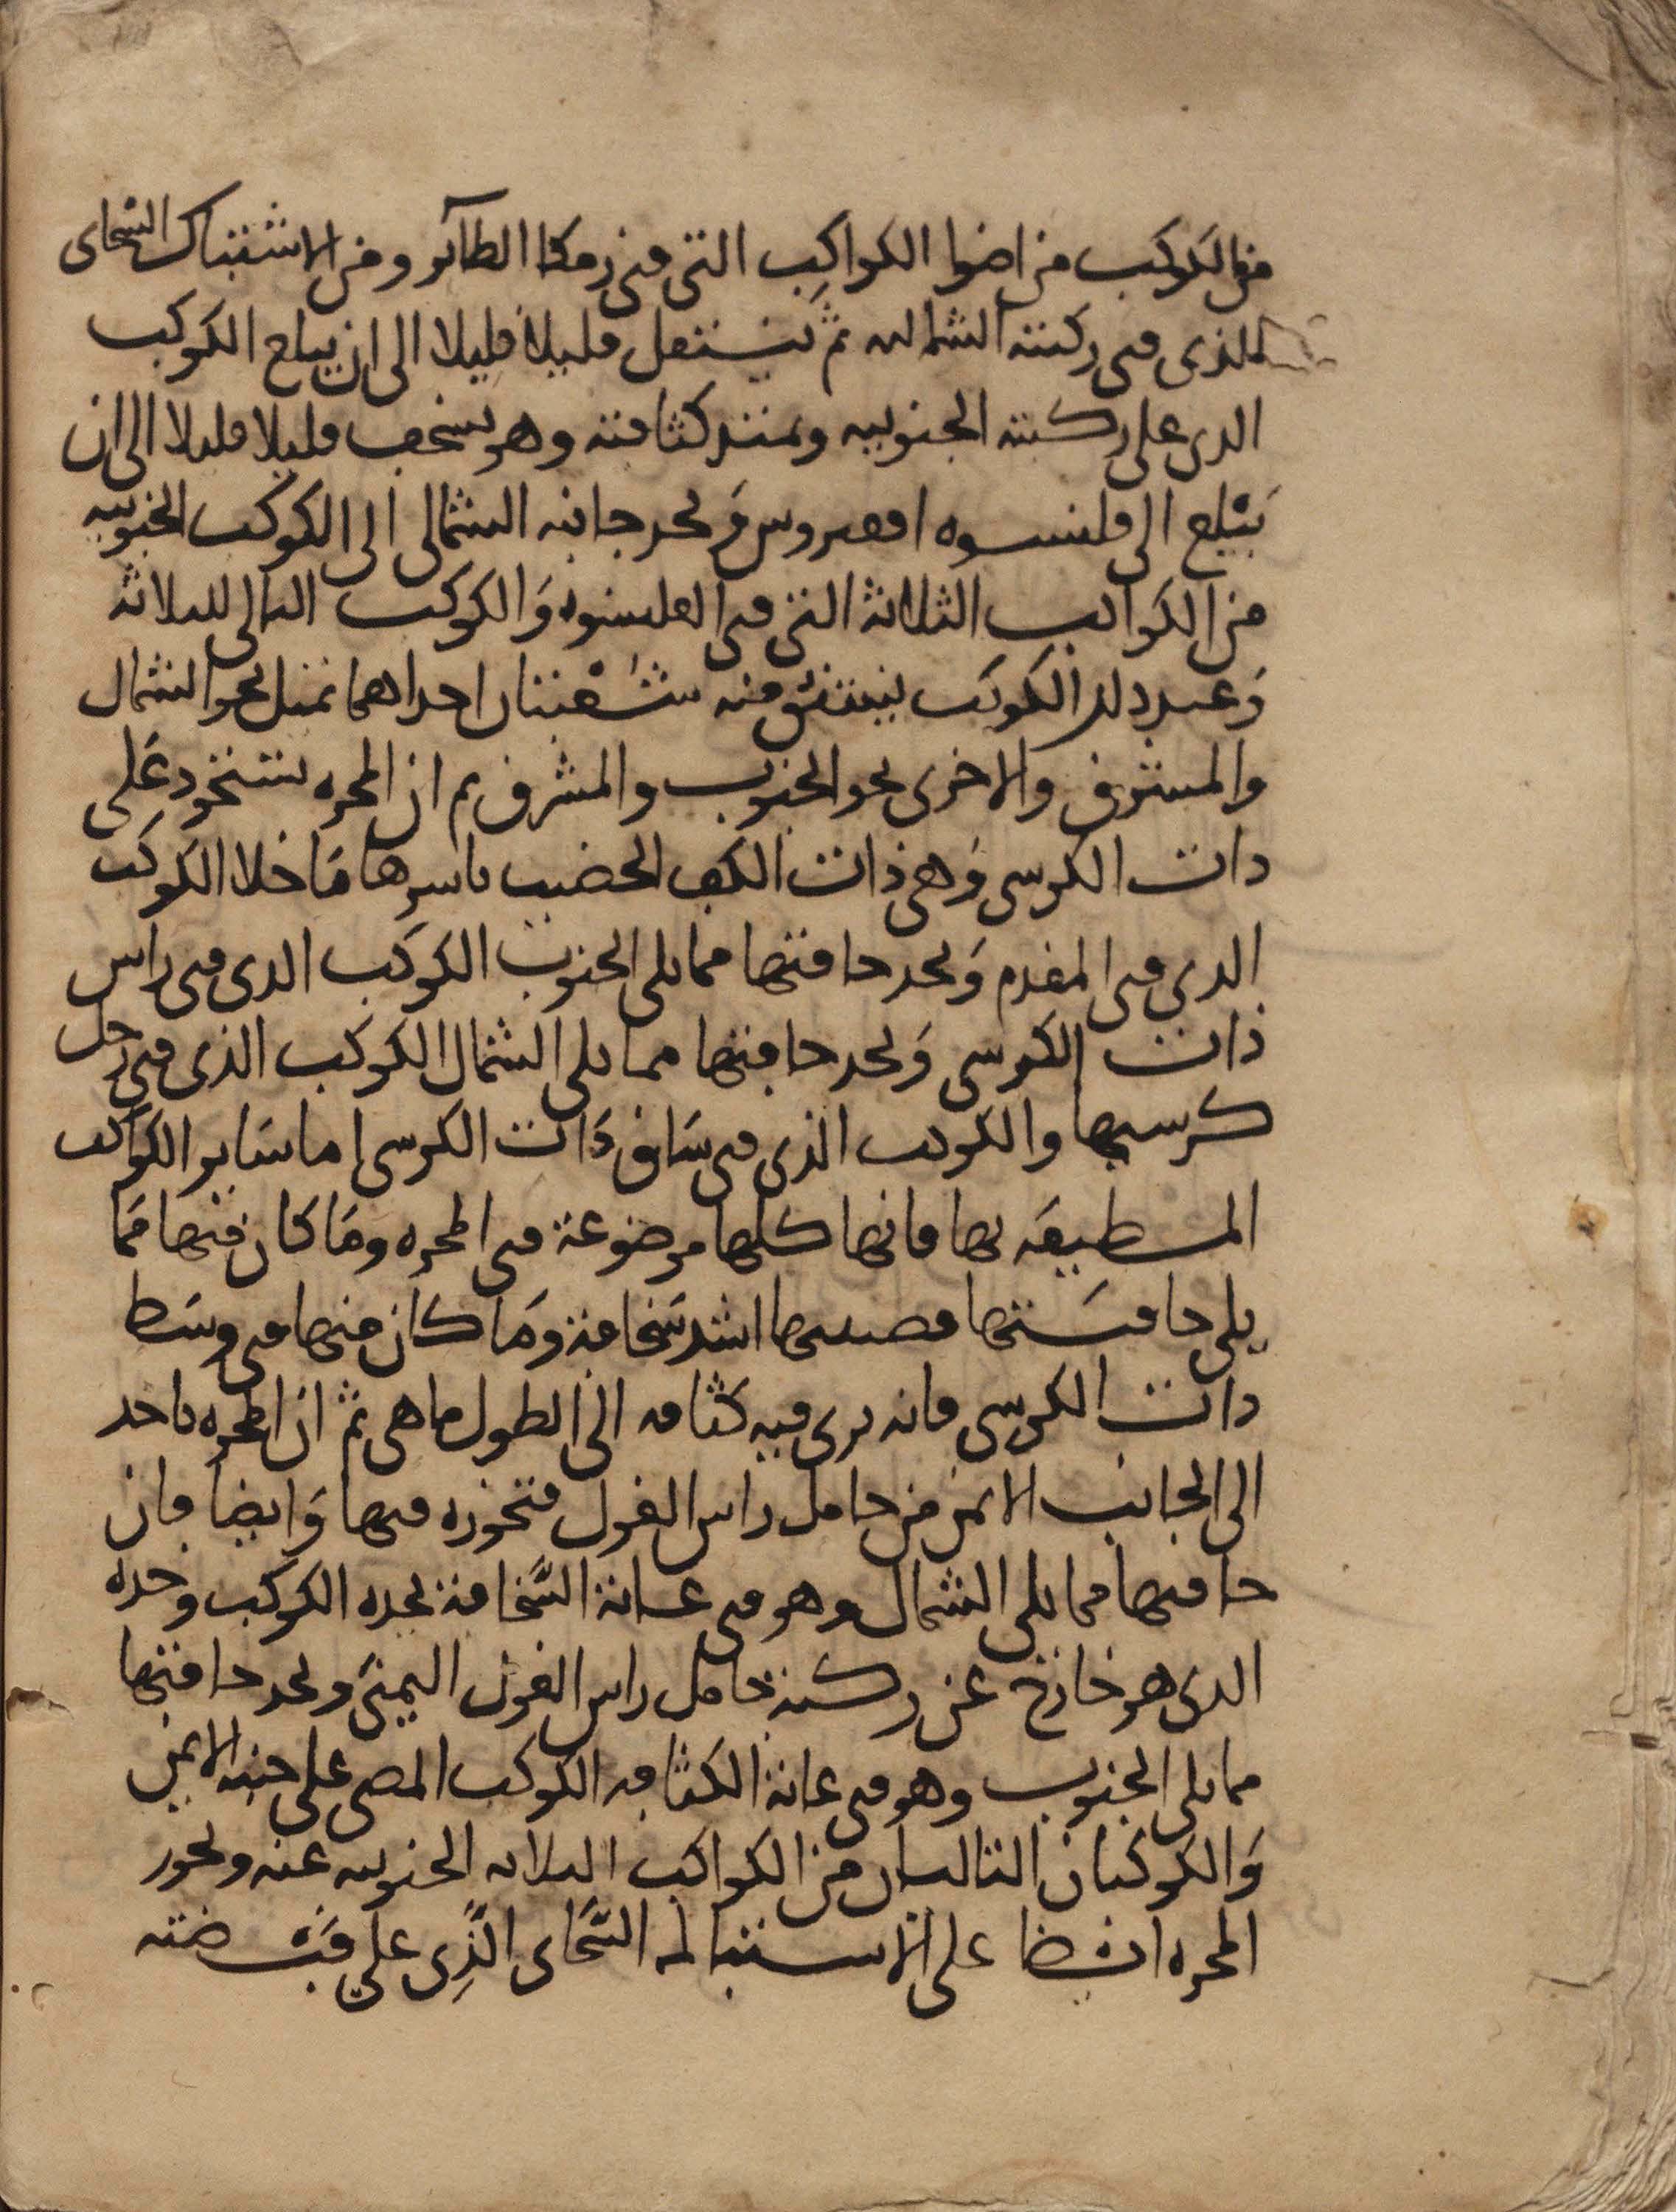 من الكوكب من اضوا الكواكب التي في زمكا الطائر ومن الاشتباك السحابي
الذي في ركبته الشماليه ثم ينتقل قليلا قليلا الى ان يبلغ الكوكب
الذي على ركبته الجنوبيه وتمتد كثافته وهو يسخف قليلا قليلا الى ان
يبلغ الى قلنسوه اققىروس وَيحد جانبه الشمالي الى الكوكب الجنوبيه
من الكواكب الثلاثة التي في القلنسوه وَالكوكب التالي للثلاثة
وَعند ذلك الكوكب ينبثق منه شعبتان احداهما تميل نحو الشمال
والمشرق والاخرى نحو الجنوب والمشرق ثم ان المجره تستحوذ عَلى
ذات الكرسي وَهي ذات الكف الخضيب باسرها مَا خلا الكوكب
الذي في المقدم وَيحد حافتها مما يلي الجنوب الكوكب الذي في راس
ذات الكرسي وَيحد حافتها مما يلي الشمال الكوكب الذي في رجل
كرسيها والكوكب الذي في سَاق ذَات الكرسي اما سَاير الكواكب
المـطيفه بها فانها كلها موضوعة في المجره ومَا كان منها مَما
يلي حافـتـها فصببها اشد سَخافة ومَا كان منها في وسَط
ذات الكرسي فانه يرى فيه كثافه الى الطول ما هي ثم ان المجره تاخذ
الى الجانب الايمن من حامل راس الغول فتحوزه فيها وَايضا فان
حافتها مما يلي الشمال وهو في غـاية السَّخافة يحده الكوكب وحده
الذي هو خارج عن ركـبة حامل راس الغول اليمنى ويحد حافتها
مما يلي الجنوب وهو في غاية الكثافه الكوكب المضي على جنبه الايمن
وَالكوكبان التاليان من الكواكب الثلاثه الجنوبيه عنه ويحوز
المجره ايضا على الاستباله السَّحابي الَّذِي على قبـضته